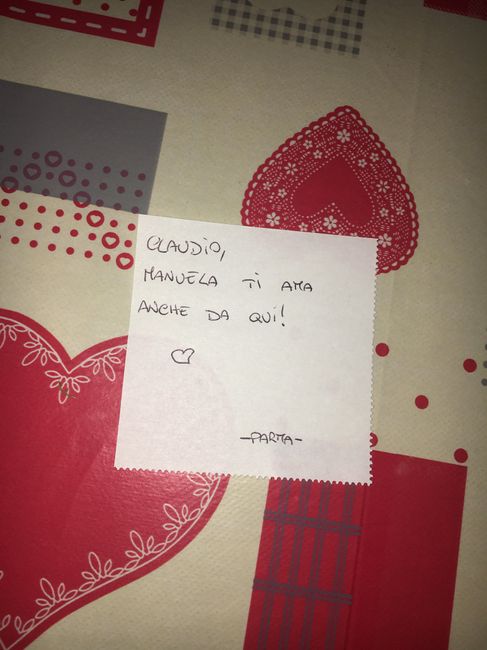 CLAUDIO,
MANUELA TI AMA
ANCHE DA QUI!
-PARMA-